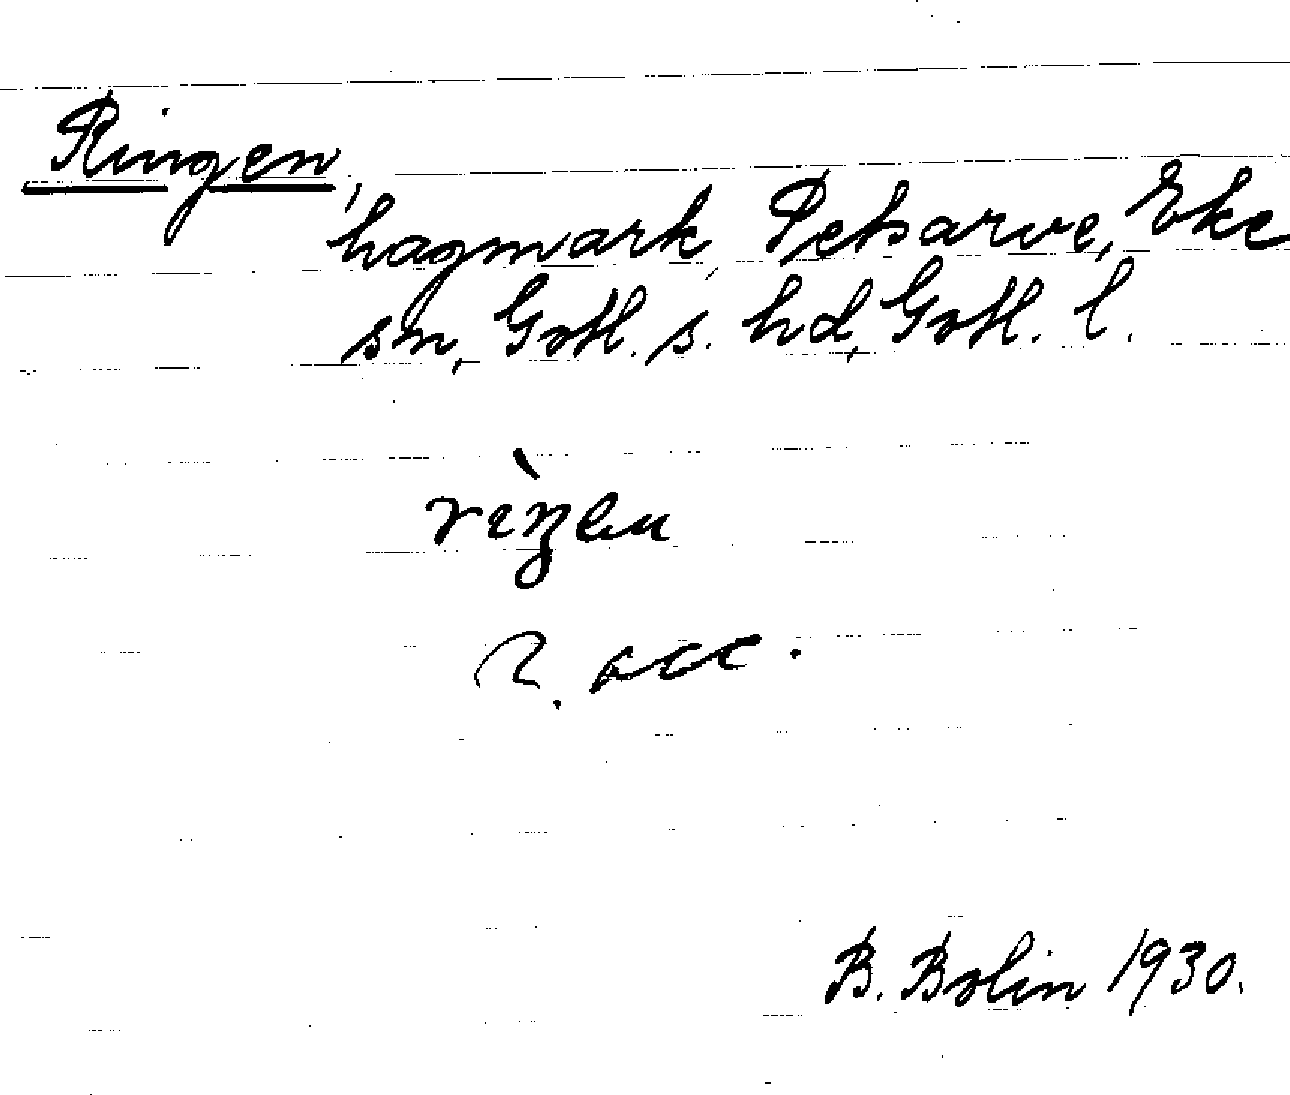 Ringen,
hagmark, Petsarve, Eke
sn, Gotl. s. hd, Gotl. l.
2. acc.
B. Bolin 1930.